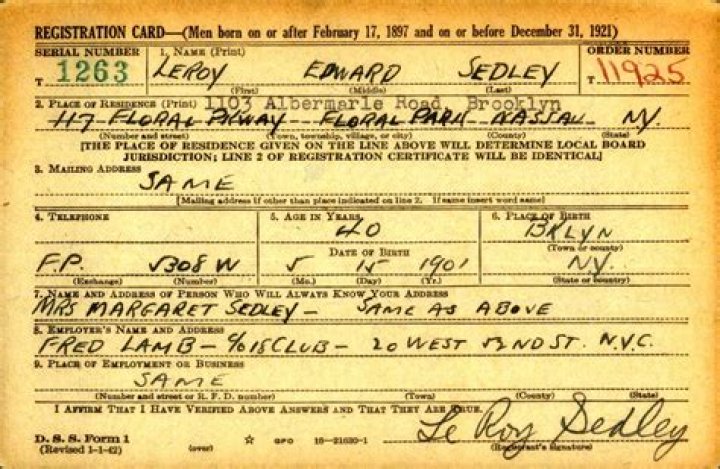 REGISTRATION CARD—(Men born on or after February 17, 1897 and on or before December 31, 1921)
SERIAL NUMBER 1. NAME (Print) ORDER NUMBER
T 1263 LEROY EDWARD SEDLEY T 11925
(First) (Middle) (Last)
2. PLACE OF RESIDENCE (Print) 1103 Albermarle Road, Brooklyn
117 FLORAL PKWAY FLORAL PARK NASSAU NY.
(Number and street) (Town, township, village, or city) (County) (State)
[THE PLACE OF RESIDENCE GIVEN ON THE LINE ABOVE WILL DETERMINE LOCAL BOARD
JURISDICTION; LINE 2 OF REGISTRATION CERTIFICATE WILL BE IDENTICAL]
3. MAILING ADDRESS
SAME
[Mailing address if other than place indicated on line 2. If same insert word same]
4. TELEPHONE 5. AGE IN YEARS 6. PLACE OF BIRTH
40 BKLYN
DATE OF BIRTH (Town or county)
F.P. 5308 W 5 15 1901 N.Y.
(Exchange) (Number) (Mo.) (Day) (Yr.) (State or country)
7. NAME AND ADDRESS OF PERSON WHO WILL ALWAYS KNOW YOUR ADDRESS
MRS MARGARET SEDLEY - SAME AS ABOVE
8. EMPLOYER'S NAME AND ADDRESS
FRED LAMB - c/o 18 CLUB - 20 WEST 52ND ST. N.Y.C.
9. PLACE OF EMPLOYMENT OR BUSINESS
SAME
(Number and street or R. F. D. number) (Town) (County) (State)
I AFFIRM THAT I HAVE VERIFIED ABOVE ANSWERS AND THAT THEY ARE TRUE.
D. S. S. Form 1
(Revised 1-1-42) (over) ☆ GPO 16—21630-1 Le Roy Sedley
(Registrant's signature)